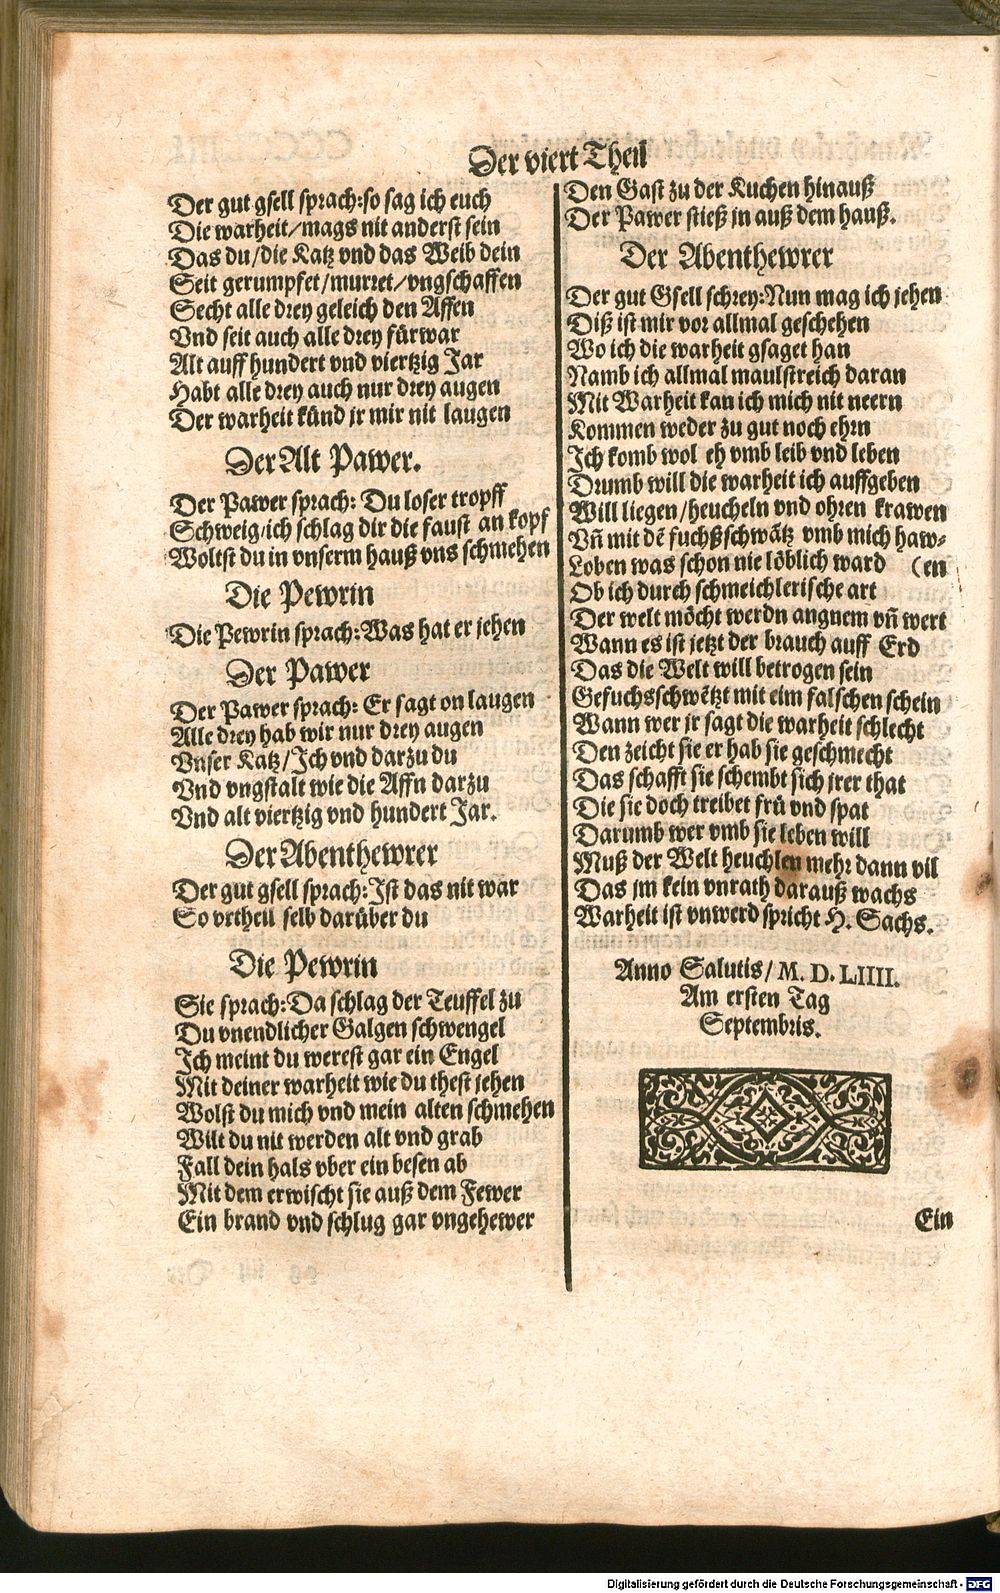 Der viert Theil
Der gut gsell sprach:so sag ich euch
Die warheit/mags nit anderst sein
Das du/die Katz vnd das Weib dein
Seit gerumpfet/murret/vngschaffen
Secht alle drey geleich den Affen
Vnd seit auch alle drey fürwar
Alt auff hundert vnd viertzig Jar
Habt alle drey auch nur drey augen
Der warheit künd jr mir nit laugen
Der Alt Pawer.
Der Pawer sprach: Du loser tropff
Schweig/ich schlag dir die faust an kopf
Woltst du in vnserm hauß vns schmehen
Die Pewrin
Die Pewrin sprach:Was hat er jehen
Der Pawer
Der Pawer sprach: Er sagt on laugen
Alle drey hab wir nur drey augen
Vnser Katz/Ich vnd darzu du
Vnd vngstalt wie die Affn darzu
Vnd alt viertzig vnd hundert Jar.
Der Abenthewrer
Der gut gsell sprach:Ist das nit war
So vrtheil selb darüber du
Die Pewrin
Sie sprach:Da schlag der Teuffel zu
Du vnendlicher Galgen schwengel
Ich meint du werest gar ein Engel
Mit deiner warheit wie du thest jehen
Wolst du mich vnd mein alten schmehen
Wilt du nit werden alt vnd grab
Fall dein hals vber ein besen ab
Mit dem erwischt sie auß dem Fewer
Ein brand vnd schlug gar vngehewer
Den Gast zu der Kuchen hinauß
Der Pawer stieß jn auß dem hauß.
Der Abenthewrer
Der gut Gsell schrey:Nun mag ich jehen
Diß ist mir vor allmal geschehen
Wo ich die warheit gsaget han
Namb ich allmal maulstreich daran
Mit Warheit kan ich mich nit neern
Kommen weder zu gut noch ehrn
Ich komb wol eh vmb leib vnd leben
Drumb will die warheit ich auffgeben
Will liegen/heucheln vnd ohren krawen
Vñ mit dẽ fuchßschwãtz vmb mich haw-
Loben was schon nie löblich ward (en
Ob ich durch schmeichlerische art
Der welt möcht werdn angnem vñ wert
Wann es ist jetzt der brauch auff Erd
Das die Welt will betrogen sein
Gefuchsschwẽtzt mit eim falschen schein
Wann wer jr sagt die warheit schlecht
Den zeicht sie er hab sie geschmecht
Das schafft sie schembt sich jrer that
Die sie doch treibet frü vnd spat
Darumb wer vmb sie leben will
Muß der Welt heuchlen mehr dann vil
Das jm kein vnrath darauß wachs
Warheit ist vnwerd spricht H. Sachs.
Anno Salutis/ M. D. LIIII.
Am ersten Tag
Septembris.
Ein
Digitalisierung gefördert durch die Deutsche Forschungsgemeinschaft - DFG